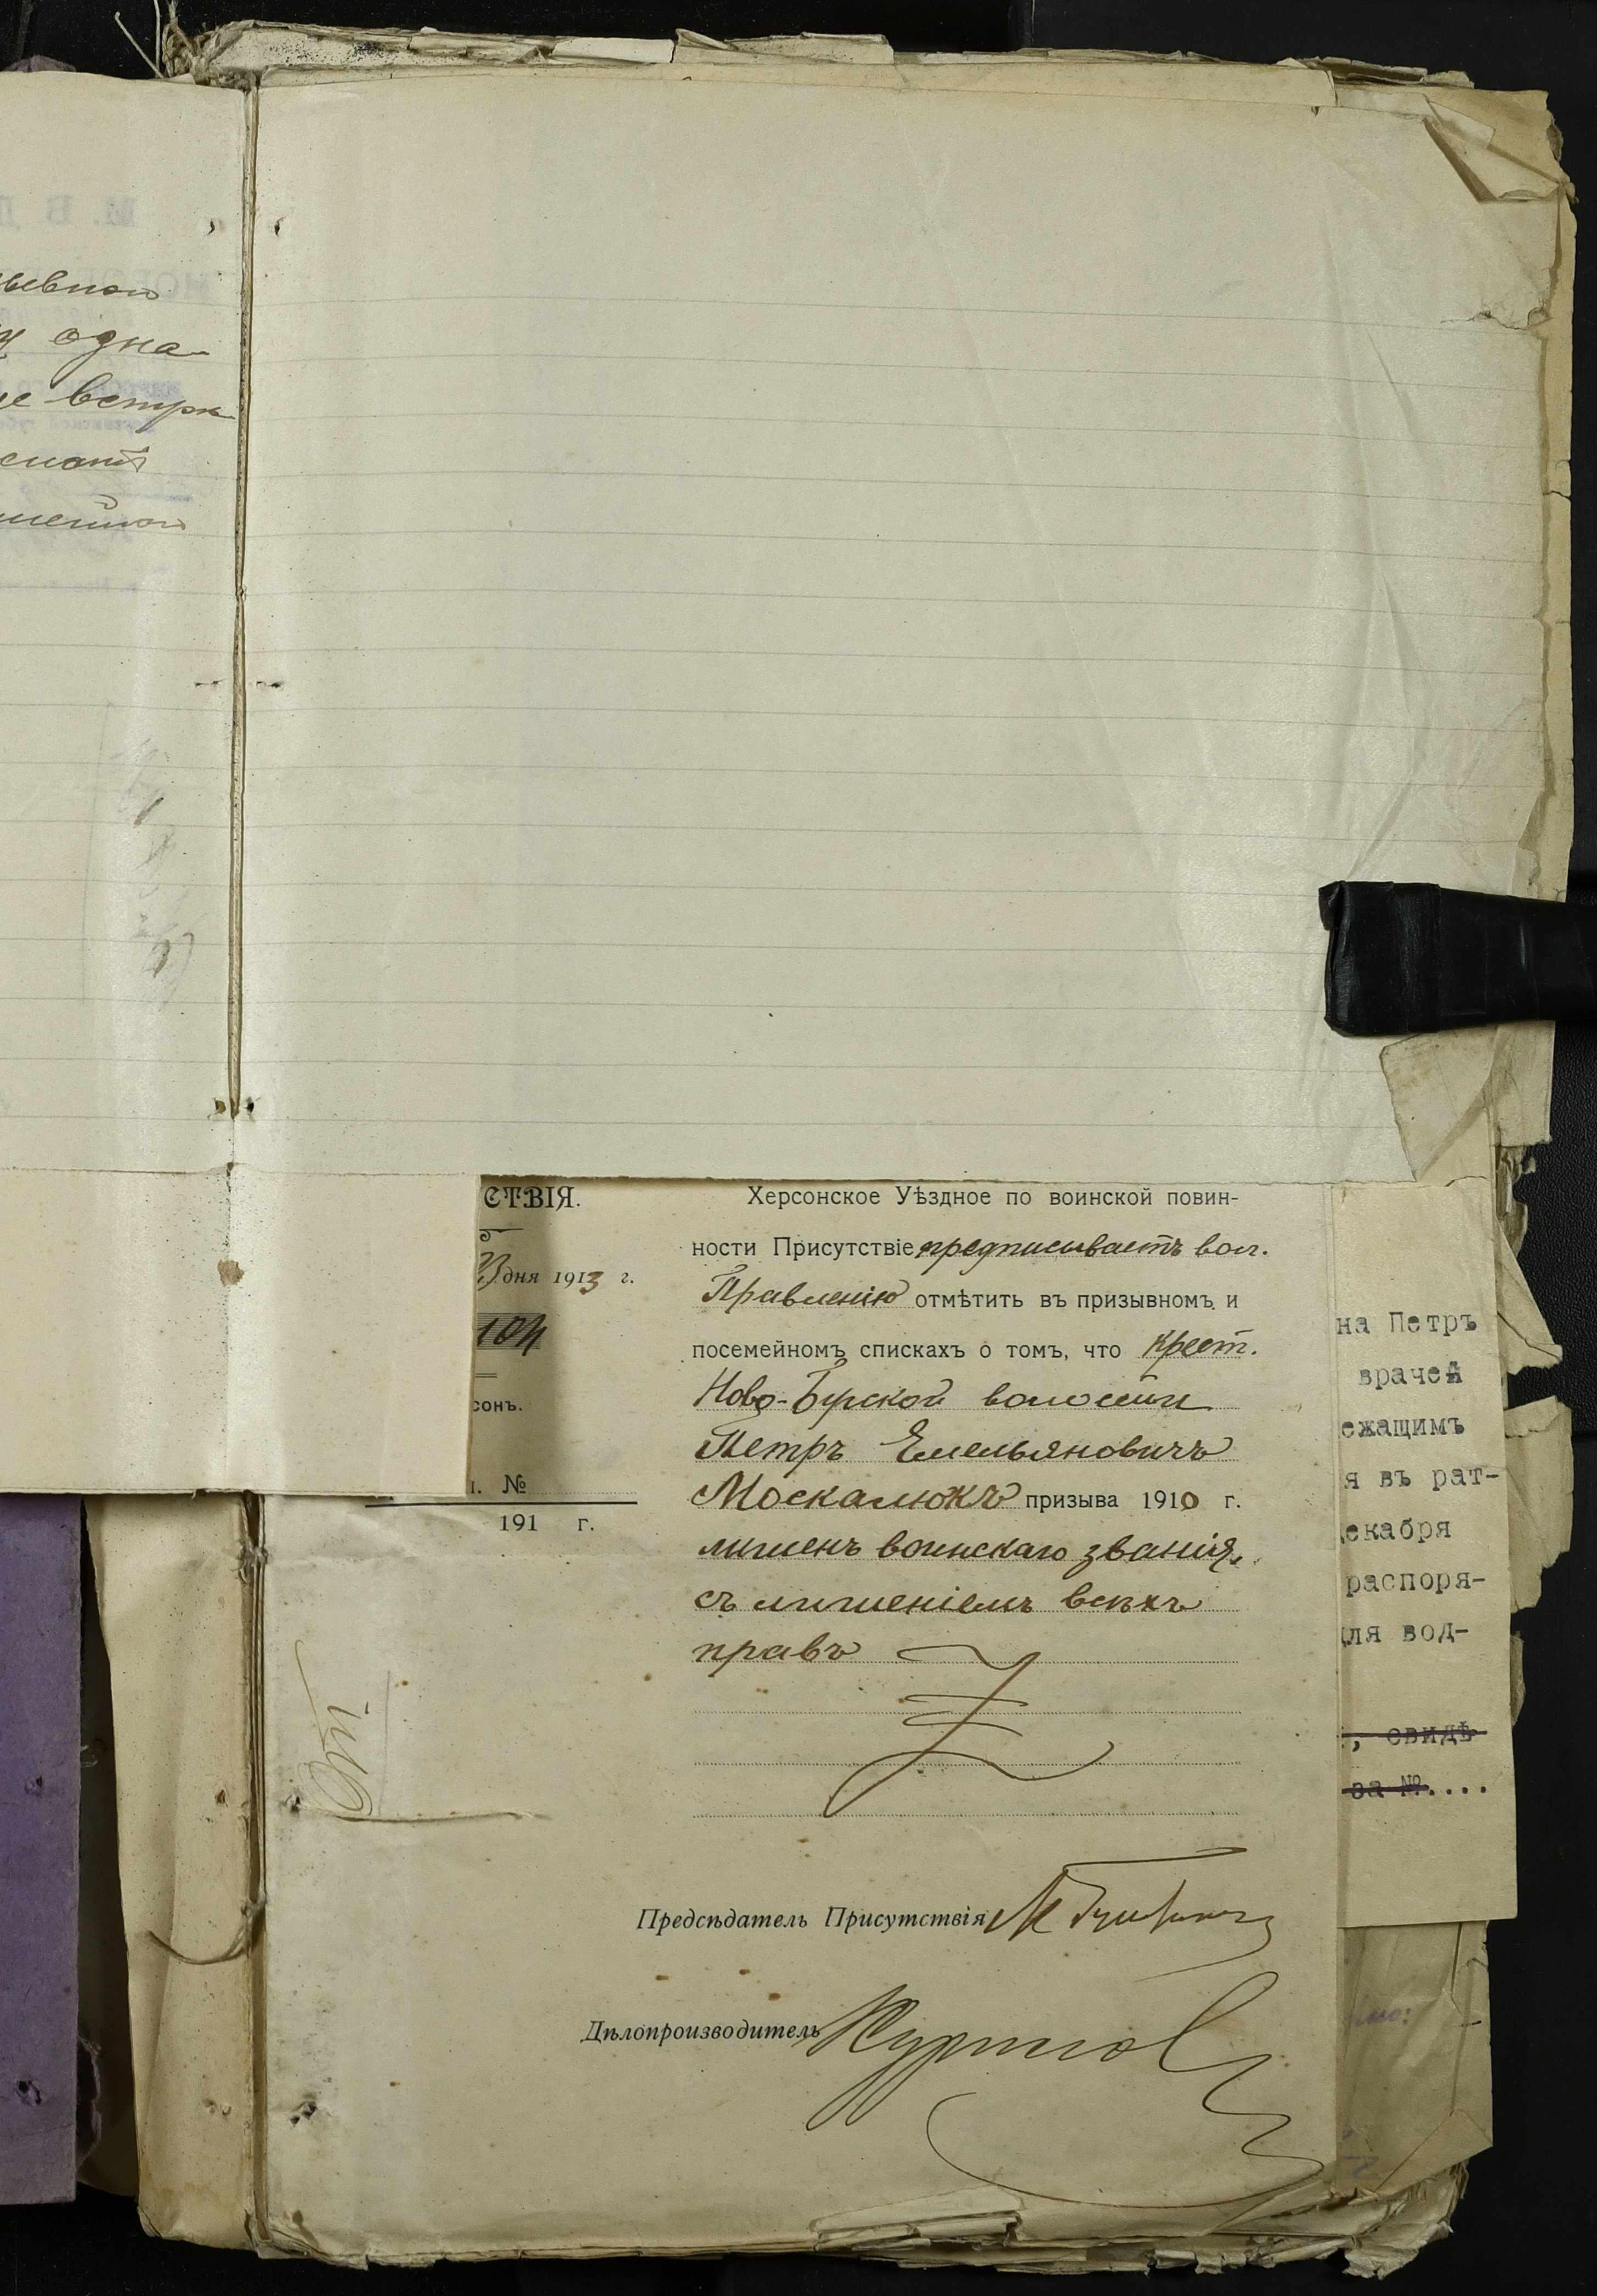 одна-
СТВІЯ.
дня 1913 г.
104
сонъ.
№
191 г.
Херсонское Уѣздное по воинской повин-
ности Присутствіе предписываетъ вол.
Правленію отмѣтить въ призывномъ и
посемейномъ спискахъ о томъ, что крест.
Ново-Бугской волости
Петръ Емельяновичъ
Москалюкъ призыва 1910 г.
лишенъ воинскаго званія,
съ лишеніемъ всѣхъ
правъ
Предсѣдатель Присутствія
Дѣлопроизводитель
на Петръ
врачей
ежащимъ
я въ рат-
екабря
распоря-
для вод-
, свидѣ
за №....